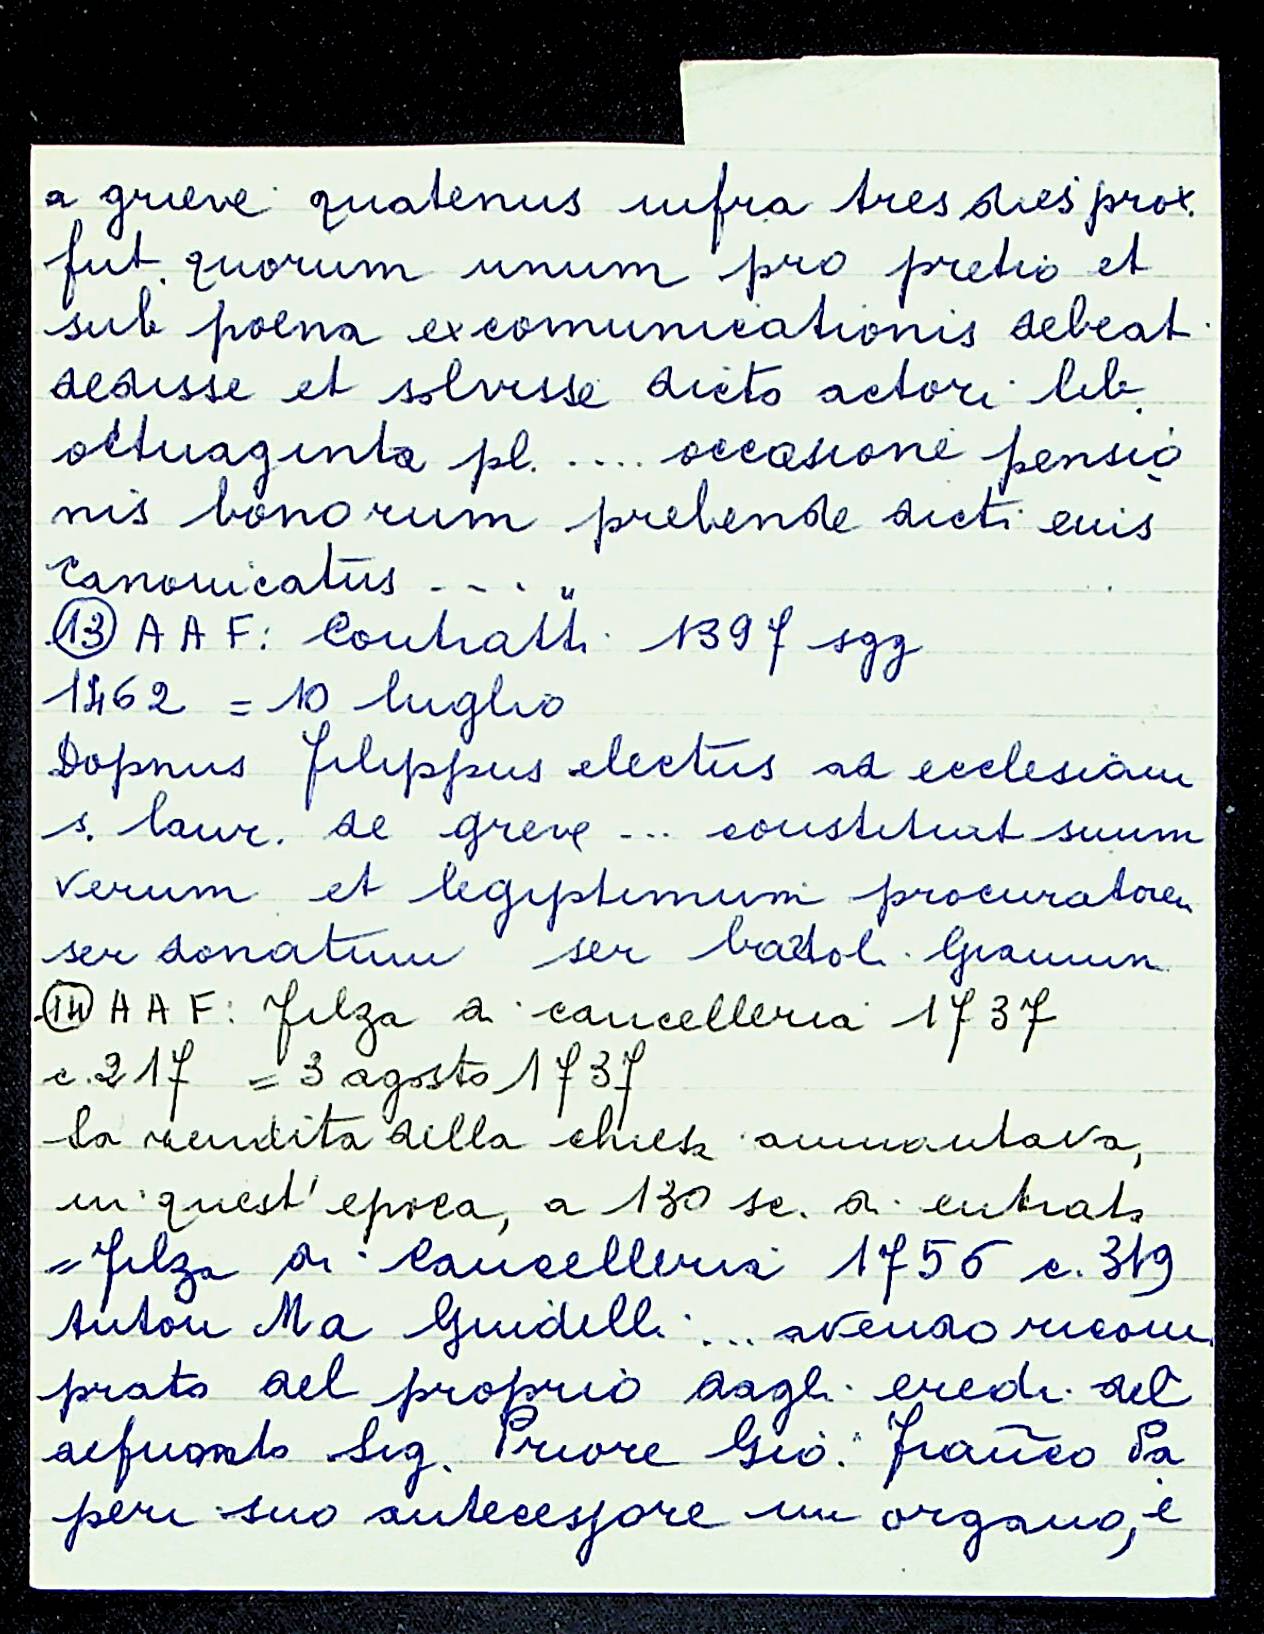 a grieve quatenus infra tres dies prox.
fut. quorum unum pro pretio et
sub poena excomunicationis debeat
dedisse et solvisse dicto actori lib.
octuaginta pl. .... occasione pensio
nis bonorum prebende dicti euis
Canonicatus ...."
13 AAF: Contratti 1397 sgg
1462 = 10 luglio
Dopnus filippus electus ad ecclesiam
s. laur. de greve ... constituit suum
verum et legiptimum procuratorem
ser donatum ser bartol. Giannin
14 AAF: Filza di cancelleria 1737
c. 217 = 3 agosto 1737
La rendita della chiesa ammontava,
in quest'epoca, a 130 sc. di entrata
= Filza di Cancelleria 1756 c. 319
Anton Ma Guidelli ... avendo ricom
prato del proprio dagli eredi del
defunto Sig. Priore Gio: Franco Pa
peri suo antecessore un organo, e